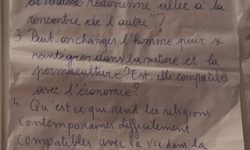 redonner aller à la
rencontre de l'autre"?
3 Peut on changer l'homme pour
reintegrer dans la nature et la
permaculture? Est elle compatible
avec l'économie?
Qu'est ce qui rend les religions
contemporaines difficilement
compatibles avec la vie dans la